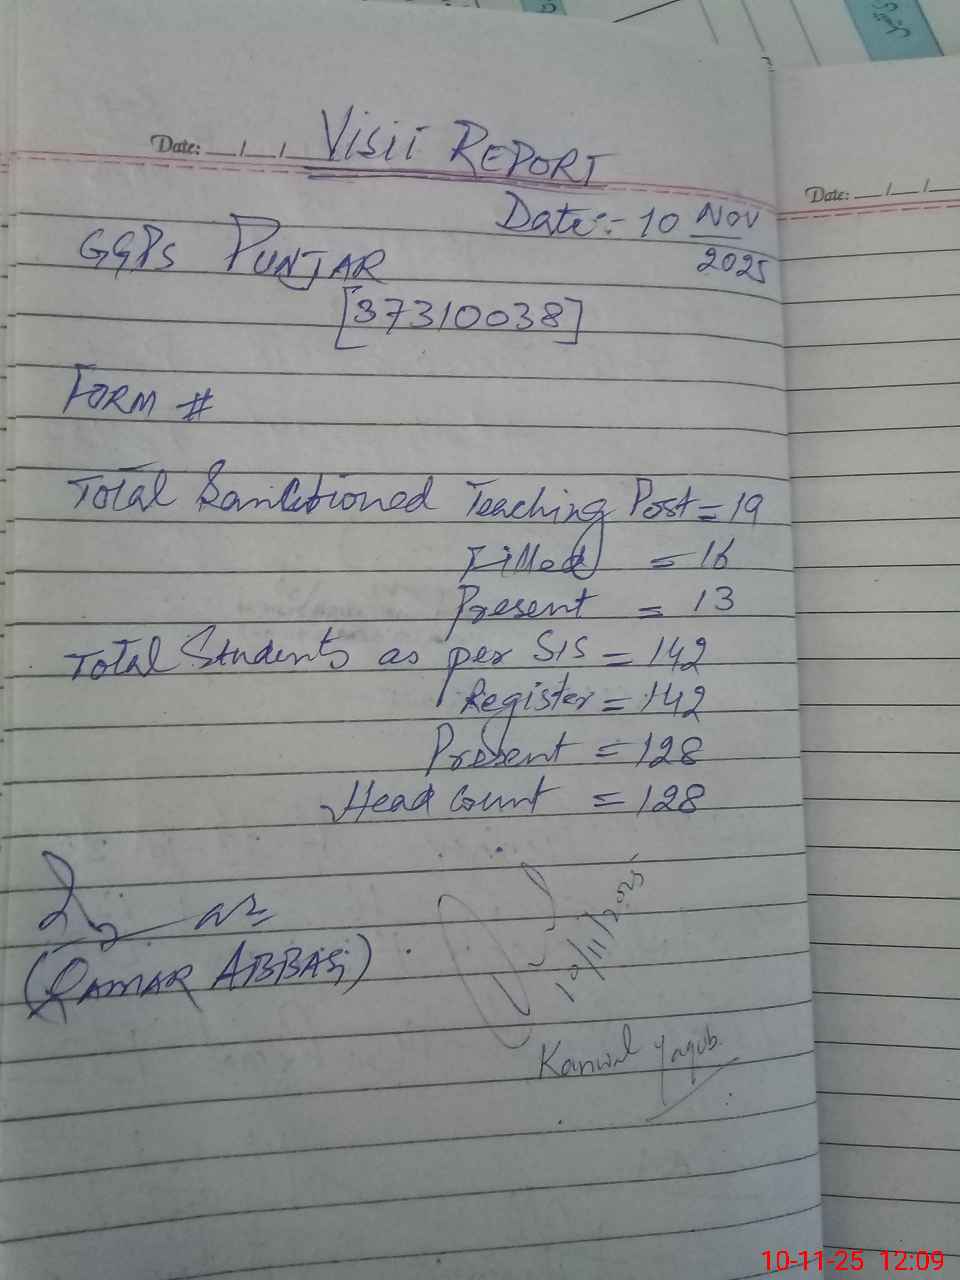 Date: __/__/__ VISIT REPORT
Date:- 10 Nov
2025
GGPS PUNJAR
[37310038]
FORM #
Total Sanctioned Teaching Post = 19
Filled = 16
Present = 13
Total Students as per SIS = 142
Register = 142
Present = 128
Head Count = 128
(QAMAR ABBAS)
10/11/2025
Kanwal Yaqub.
Date: __/__/__
10-11-25 12:09